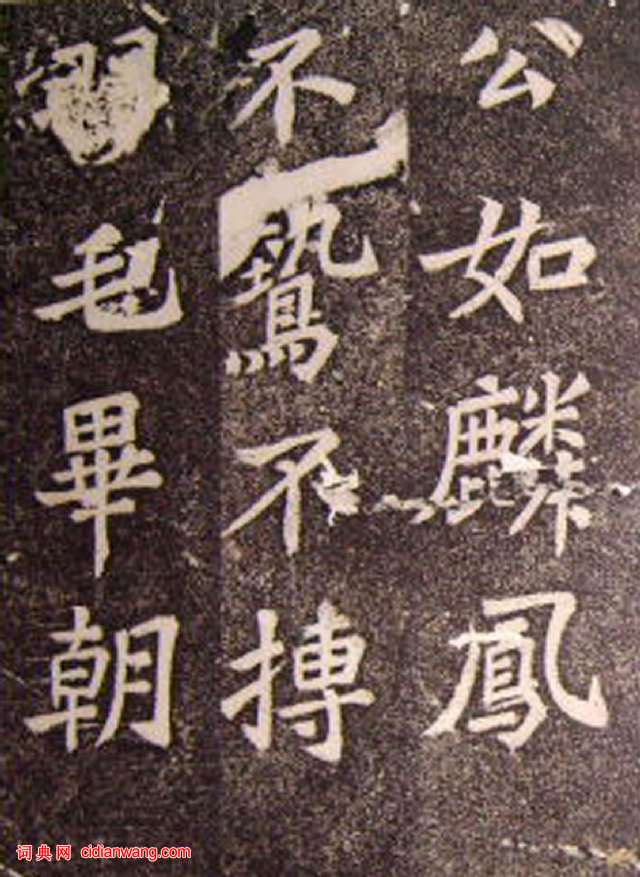 公如麟鳳
不鷙不搏
羽毛畢朝
词典网 cidianwang.com